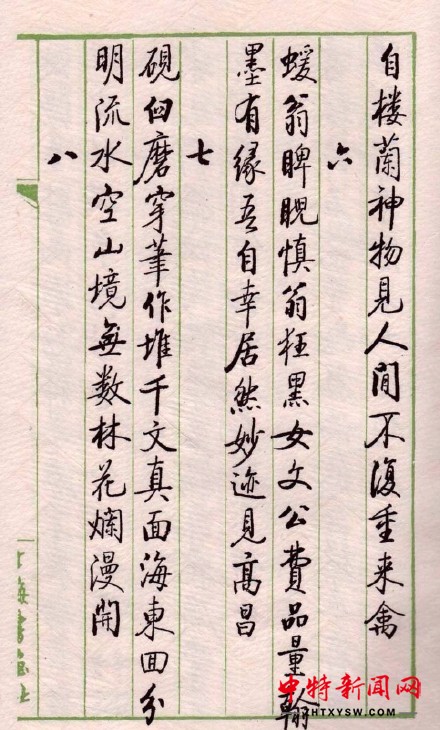 自楼蘭神物見人間不復重来禽
六
蝯翁睥睨慎翁狂黑女文公費品量翰
墨有緣吾自幸居然妙迹見高昌
七
硯臼磨穿筆作堆千文真面海東回分
明流水空山境無數林花爛漫開
八
中特新闻网
ZHTXYSW.COM